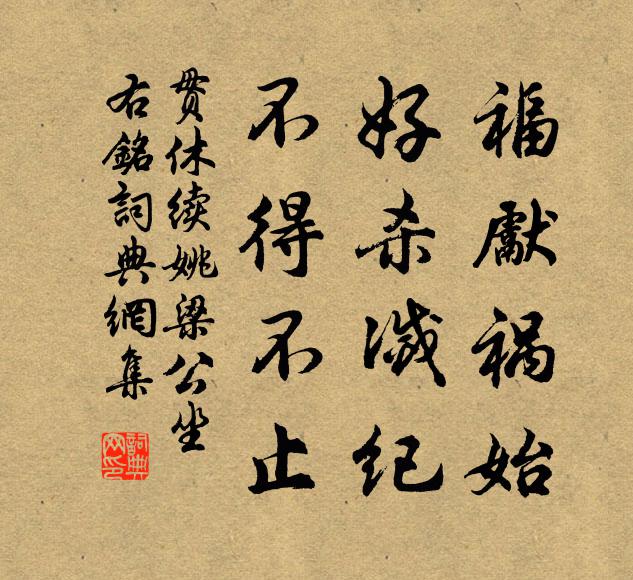 福獻祸始
好杀滅纪
不得不止
貫休续姚梁公坐
右銘詞典網集
詞典
网印